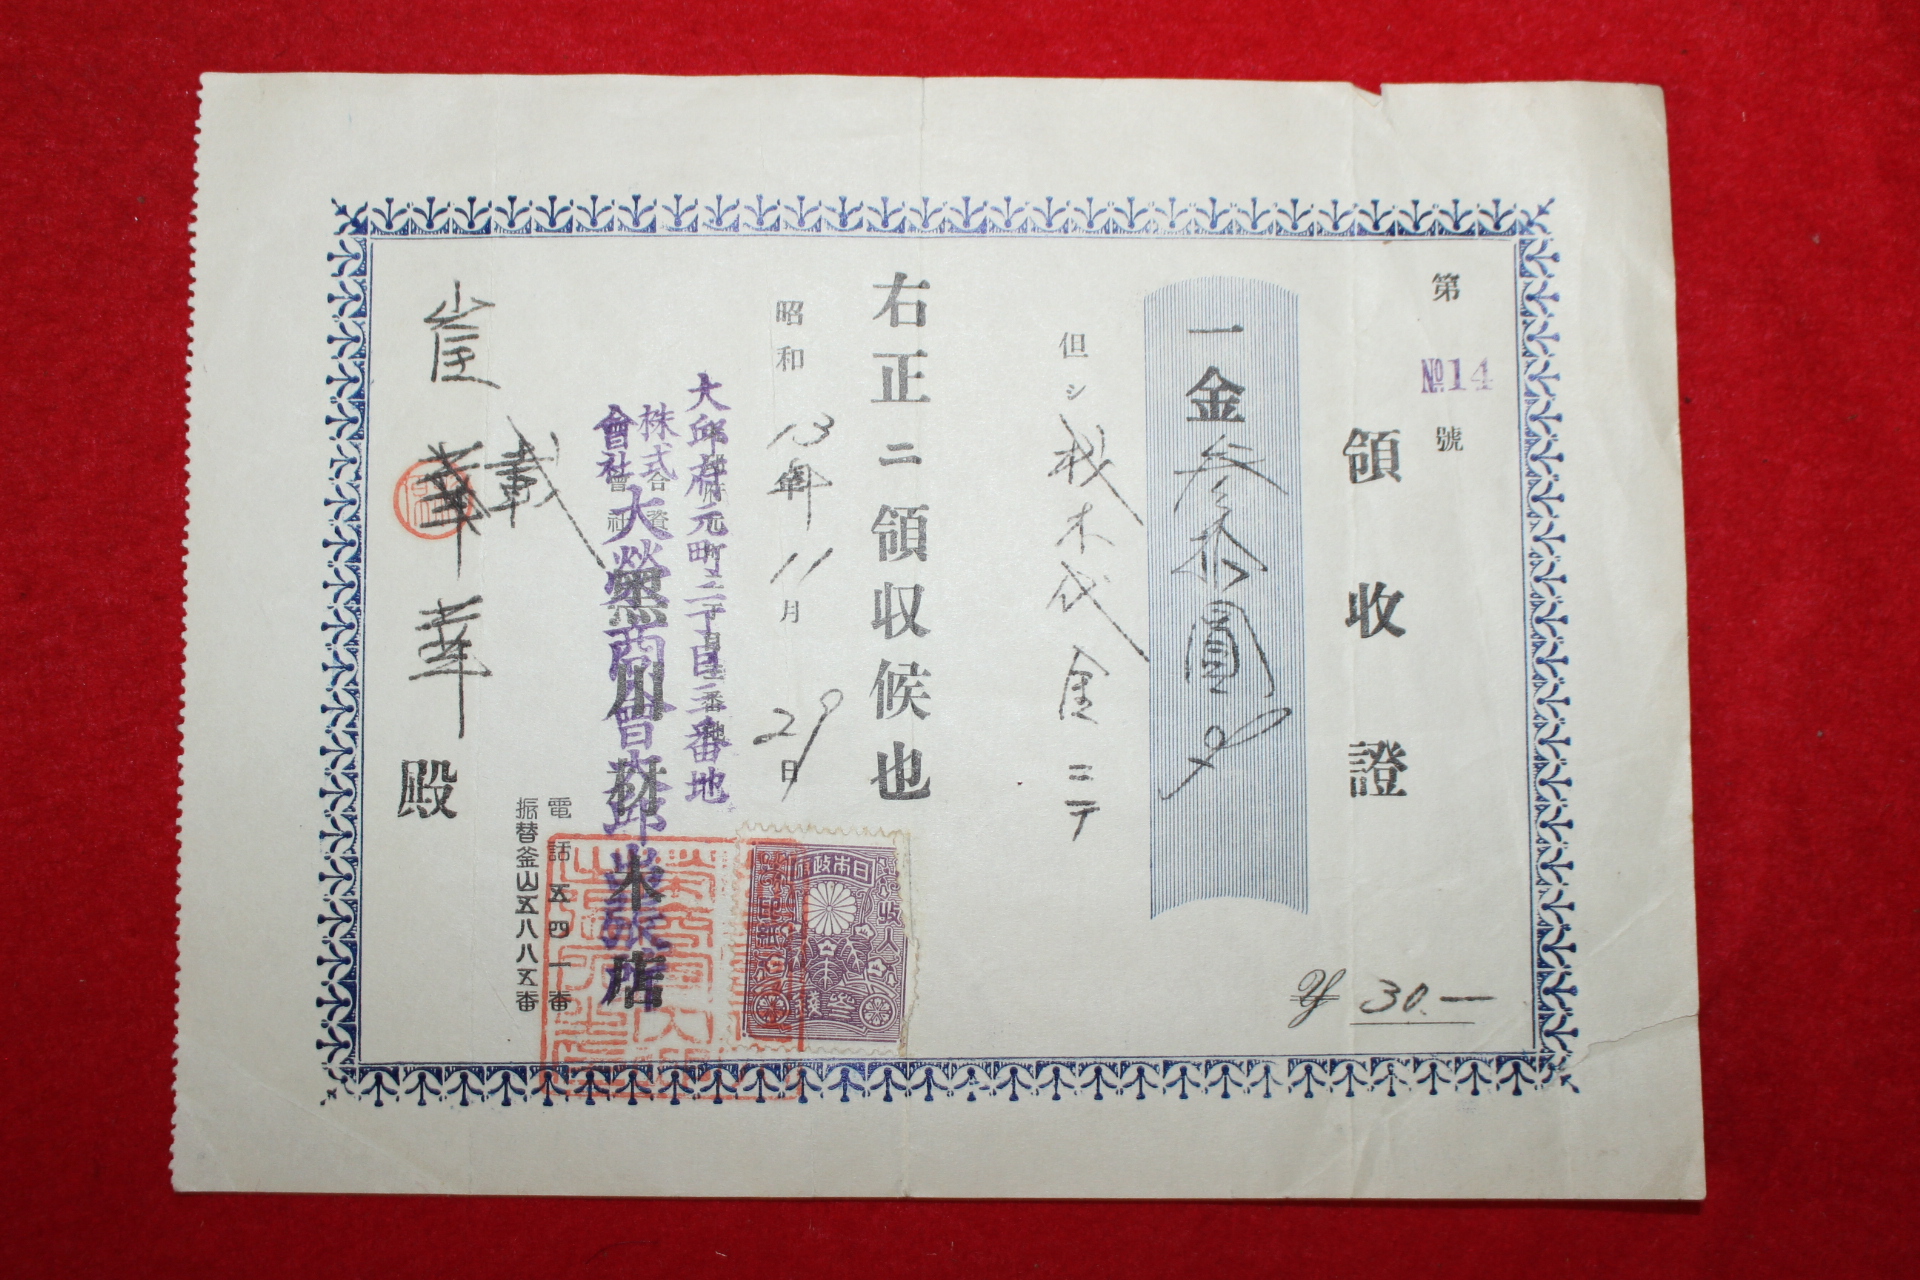 第 №14 號
領收證
一金参拾圓也
¥30.—
但シ 材木代金ニテ
右正ニ領収候也
昭和13年11月29日
大邱府元町二丁目三番地
株式會社 大榮商會大邱出張店
合資會社 黑川材木店
電話 五四一番
振替釜山五八八五番
崔載華 殿
日本政府
收入印紙